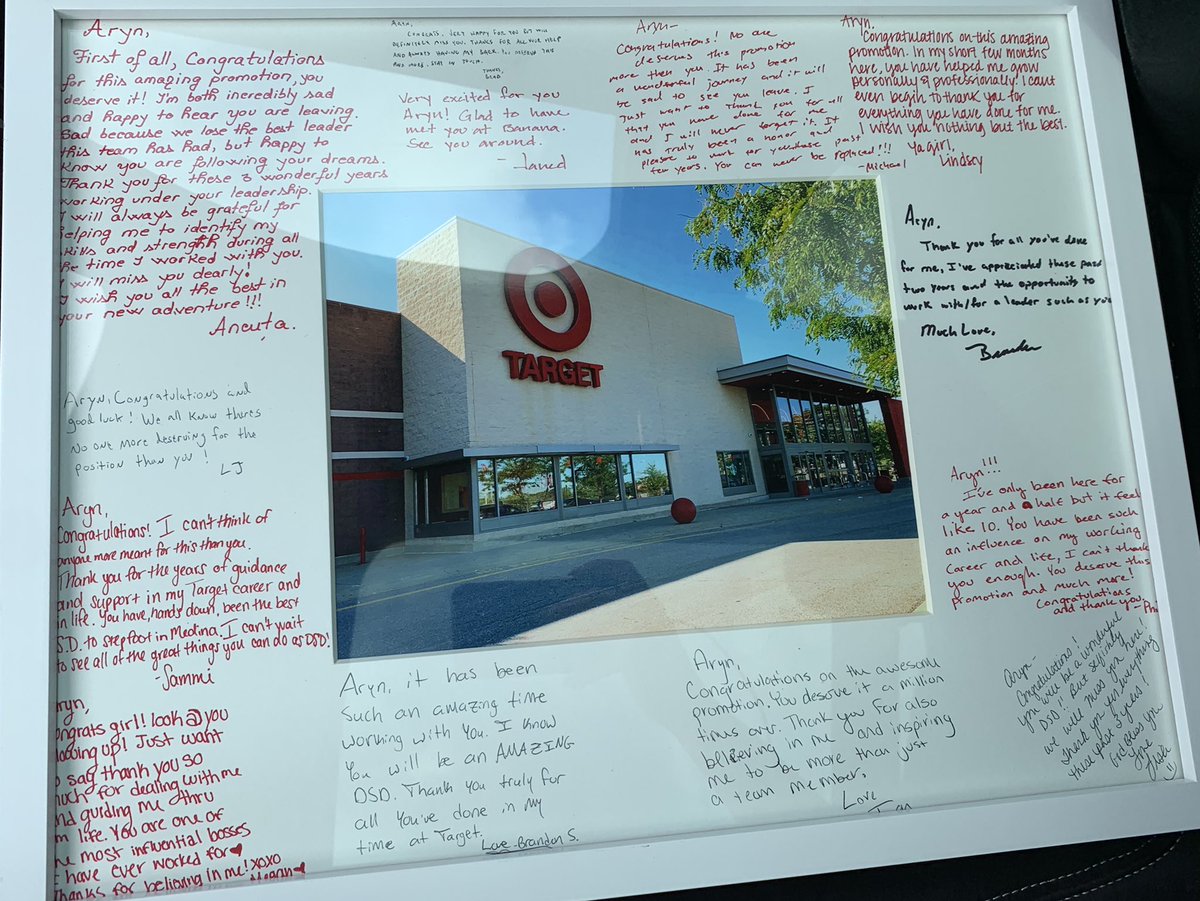 Aryn,
First of all, Congratulations
for this amazing promotion, you
deserve it! I'm both incredibly sad
and happy to hear you are leaving.
Sad because we lose the best leader
this team has had, but happy to
know you are following your dreams.
Thank you for these 3 wonderful years
working under your leadership.
I will always be grateful for
helping me to identify my
skills and strength during all
the time I worked with you.
I will miss you dearly!
I wish you all the best in
your new adventure!!!
Ancuta.
Aryn,
Congrats. Very happy for you but will
definitely miss you. Thanks for all your help
and always having my back. You deserve this
and more. Stay in touch.
Thanks,
Very excited for you
Aryn! Glad to have
met you at Banana.
See you around.
-Jared
Aryn-
Congratulations! No one
deserves this promotion
more then you. It has been
a wonderful journey and it will
be sad to see you leave. I
Just want to Thank you for all
that you have done for me
and I will never forget it. It
has truly been a honor and
pleasure to work for you these past
few years. You can never be replaced!!!
-Michael
Aryn,
Congratulations on this amazing
promotion. In my short few months
here, you have helped me grow
personally & professionally! I can't
even begin to thank you for
everything you have done for me.
I wish you nothing but the best.
Ya girl,
Lindsey
Aryn,
Thank you for all you've done
for me, I've appreciated these past
two years and the opportunity to
work with/for a leader such as you
Much Love,
TARGET
Aryn, Congratulations and
good luck! We all know theres
No one more deserving for the
position than you!
LJ
Aryn,
Congratulations! I can't think of
anyone more meant for this than you.
Thank you for the years of guidance
and support in my Target career and
in life. You have, hands down, been the best
S.D. to step foot in Medina. I can't wait
to see all of the great things you can do as DSD!
-Sammi
Aryn!!!
I've only been here for
a year and a half but it feel
like 10. You have been such
an influence on my working
career and life, I can't thank
you enough. You deserve this
promotion and much more!
Congratulations
and thank you,
-Phi
Aryn,
Congrats girl! Look @ you
moving up! Just want
to say thank you so
much for dealing with me
and guiding me thru
life. You are one of
the most influential bosses
I have ever worked for♥
Thanks for believing in me! XOXO
Aryn, it has been
Such an amazing time
working with You. I know
You will be an AMAZING
DSD. Thank You truly for
all You've done in my
time at Target.
Love-Brandon S.
Aryn,
Congratulations on the awesome
promotion. You deserve it a million
times over. Thank you for also
believing in me and inspiring
me to be more than just
a team member.
Love
Aryn-
Congratulations!
you will be a wonderful
DSD! But selfishly
we will miss you here!
Thank you for everything
these past 3 years!